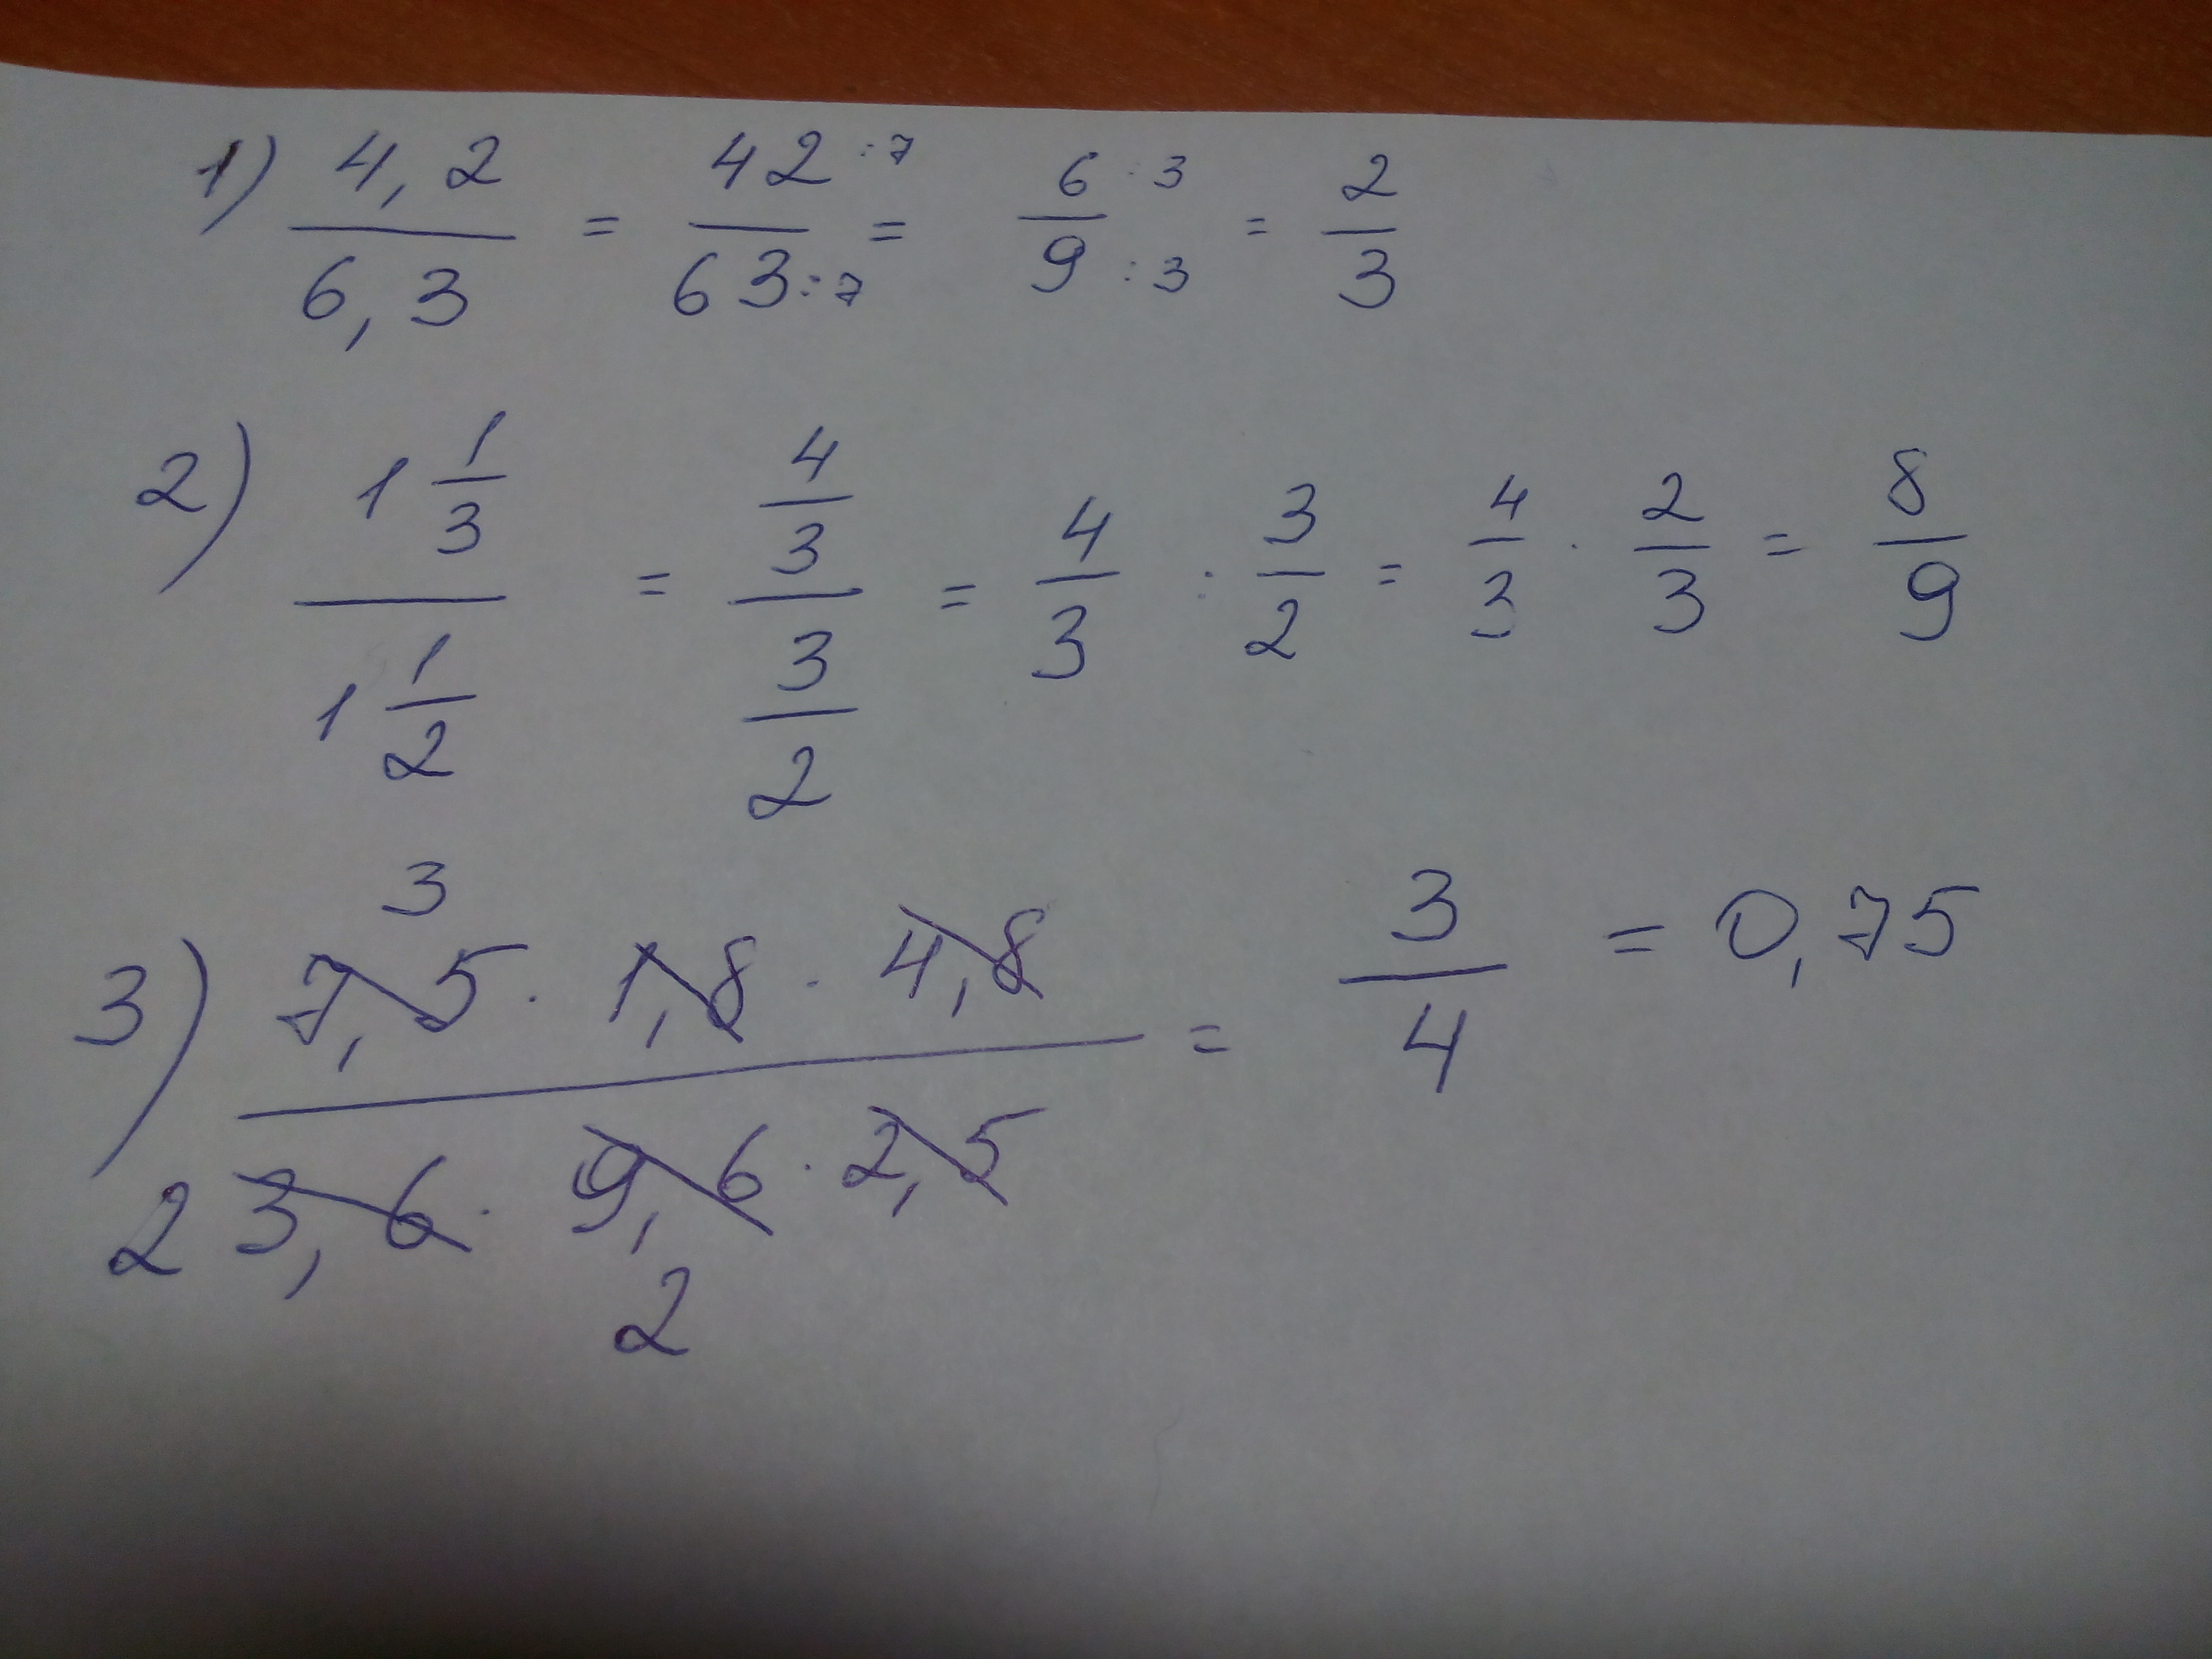 1) 4,2/6,3 = 42:7/63:7 = 6:3/9:3 = 2/3
2) 1 1/3 / 1 1/2 = 4/3 / 3/2 = 4/3 : 3/2 = 4/3 · 2/3 = 8/9
3
3) 7,5 · 1,8 · 4,8 / 3,6 · 9,6 · 2,5 = 3/4 = 0,75
2
2